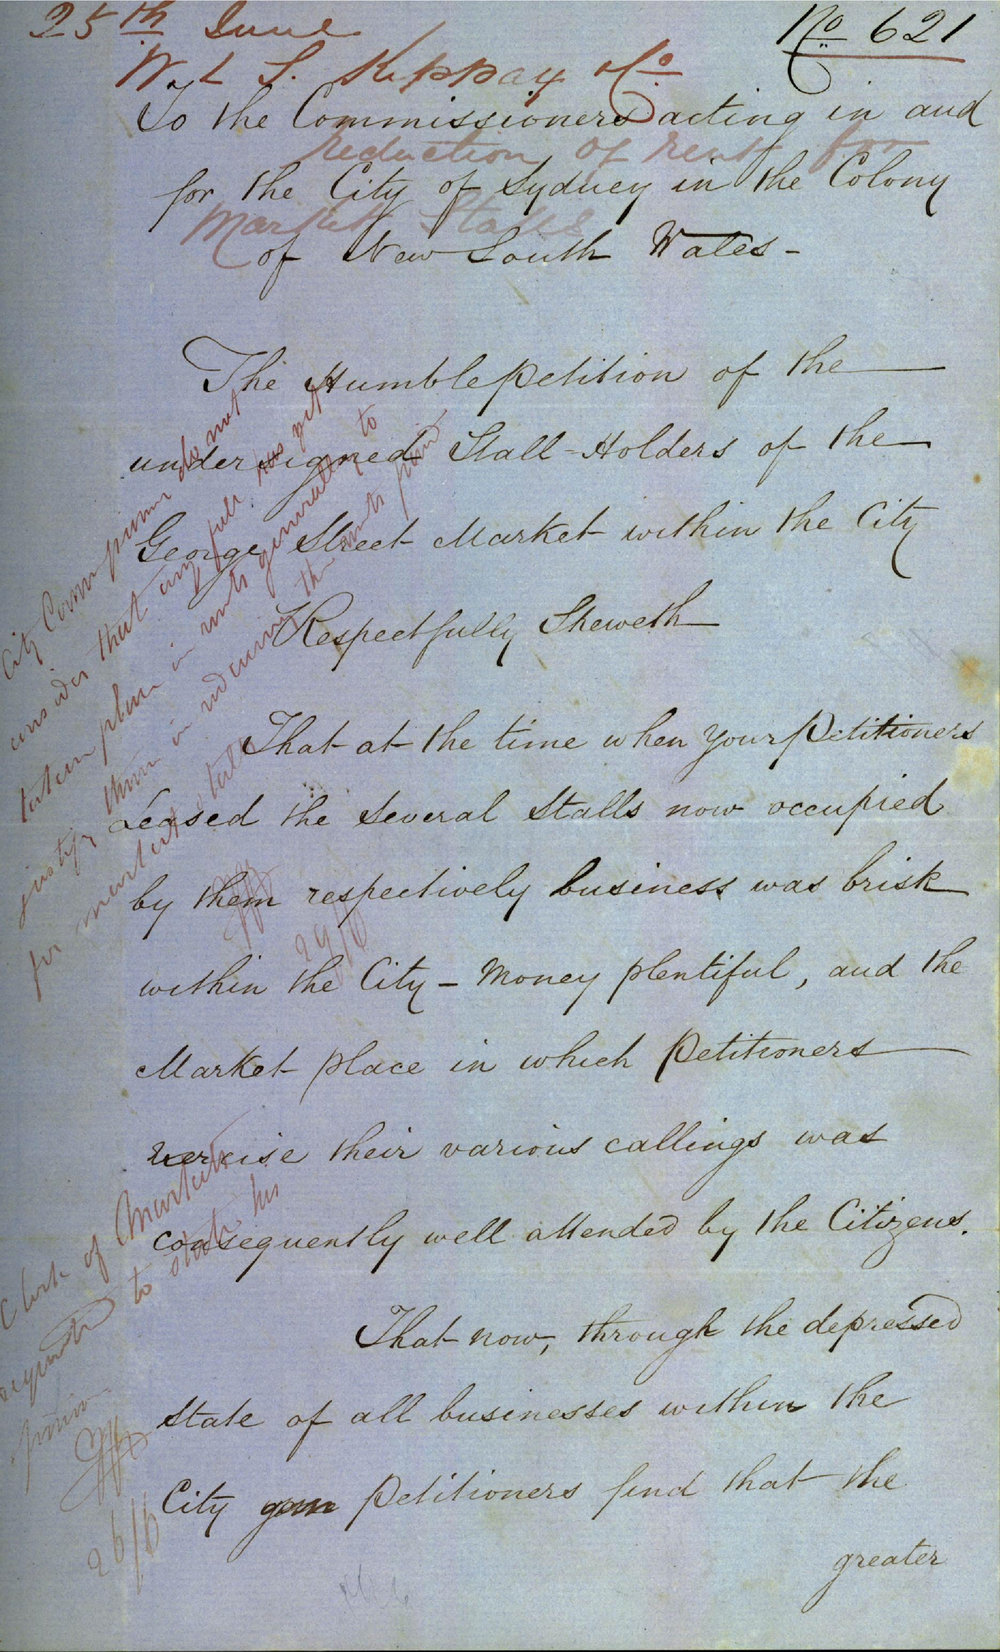 25th June
No 621
To the Commissioners acting in and
reduction of rent for
for the City of Sydney in the Colony
Market Stalls
of New South Wales -
The Humble petition of the
undersigned Stall-Holders of the
George Street Market within the City
Respectfully Sheweth
That at the time when your petitioners
Leased the several Stalls now occupied
by them respectively business was brisk
within the City - Money plentiful, and the
Market place in which petitioners
exercise their various callings was
consequently well attended by the Citizens.
That now, through the depressed
state of all businesses within the
City petitioners find that the
greater
City Commissioners do not
consider that any fall has yet
taken place in rents generally to
justify them in reducing the rents paid
for market stalls
29/6
Clerk of Markets
to state his
26/6